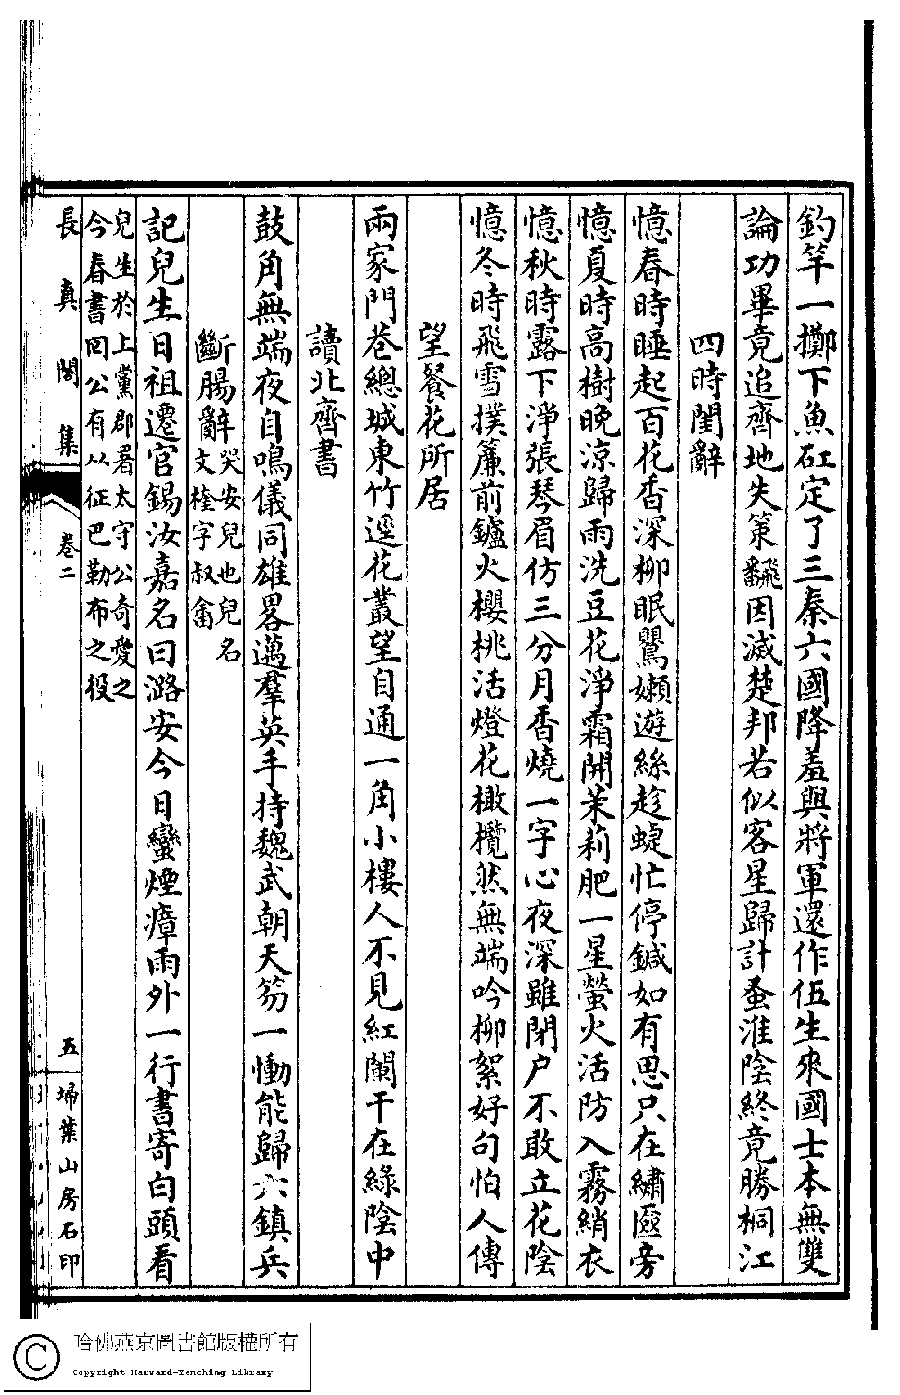 釣竿一擲下魚矼定了三秦六國降羞與將軍還作伍生來國士本無雙
論功畢竟追齊地失策翻因滅楚邦若似客星歸計蚤淮陰終竟勝桐江
四時閨辭
憶春時睡起百花香深柳眠鶯嬾遊絲趁蜨忙停鍼如有思只在繡匳旁
憶夏時高樹晚涼歸雨洗豆花淨霜開茉莉肥一星螢火活防入霧綃衣
憶秋時露下淨張琴眉仿三分月香燒一字心夜深雖閉户不敢立花陰
憶冬時飛雪撲簾前鑪火櫻桃活燈花橄欖然無端吟柳絮好句怕人傳
望餐花所居
兩家門巷總城東竹逕花叢望自通一角小樓人不見紅闌干在綠陰中
讀北齊書
鼓角無端夜自鳴儀同雄畧邁羣英手持魏武朝天笏一慟能歸六鎮兵
斷腸辭哭安兒也兒名
文桂字叔畬
記兒生日祖遷官錫汝嘉名曰潞安今日蠻煙瘴雨外一行書寄白頭看
兒生於上黨郡君太守公奇愛之
今春書回公有以征巴勒布之役
長真閣集 卷二 五 埽葉山房石印
哈佛燕京圖書館版權所有
Copyright Harvard-Yenching Library